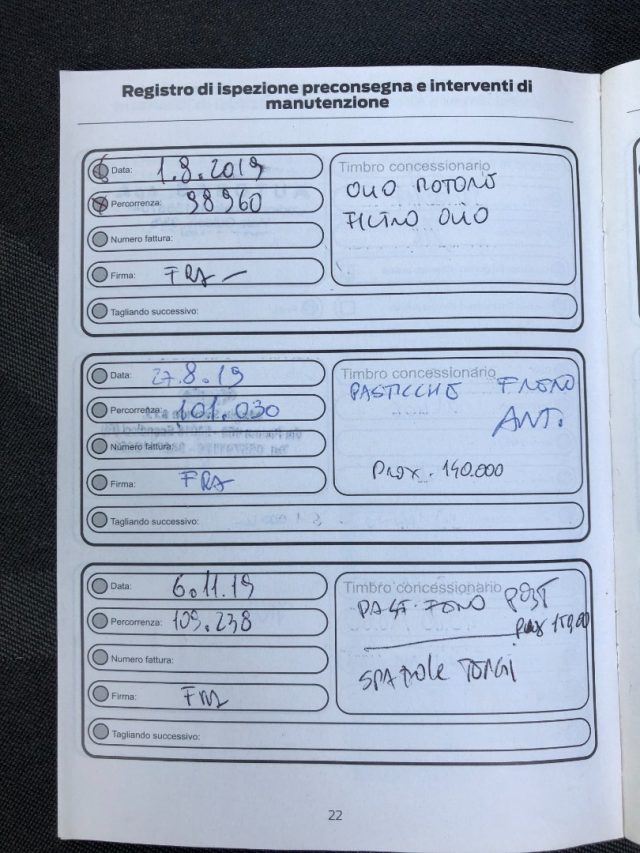 Registro di ispezione preconsegna e interventi di
manutenzione
Data: 1.8.2019
Percorrenza: 98960
Numero fattura:
Firma: FRA
Tagliando successivo:
Timbro concessionario
OLIO MOTORE
FILTRO OLIO
Data: 27.8.19
Percorrenza: 101.030
Numero fattura:
Firma: FRA
Tagliando successivo:
Timbro concessionario
PASTICCHE FRENO
ANT.
PROX. 140.000
Data: 6.11.19
Percorrenza: 109.238
Numero fattura:
Firma: FRA
Tagliando successivo:
Timbro concessionario
PAST. FRENO POST
SPAZZOLE TERGI
22